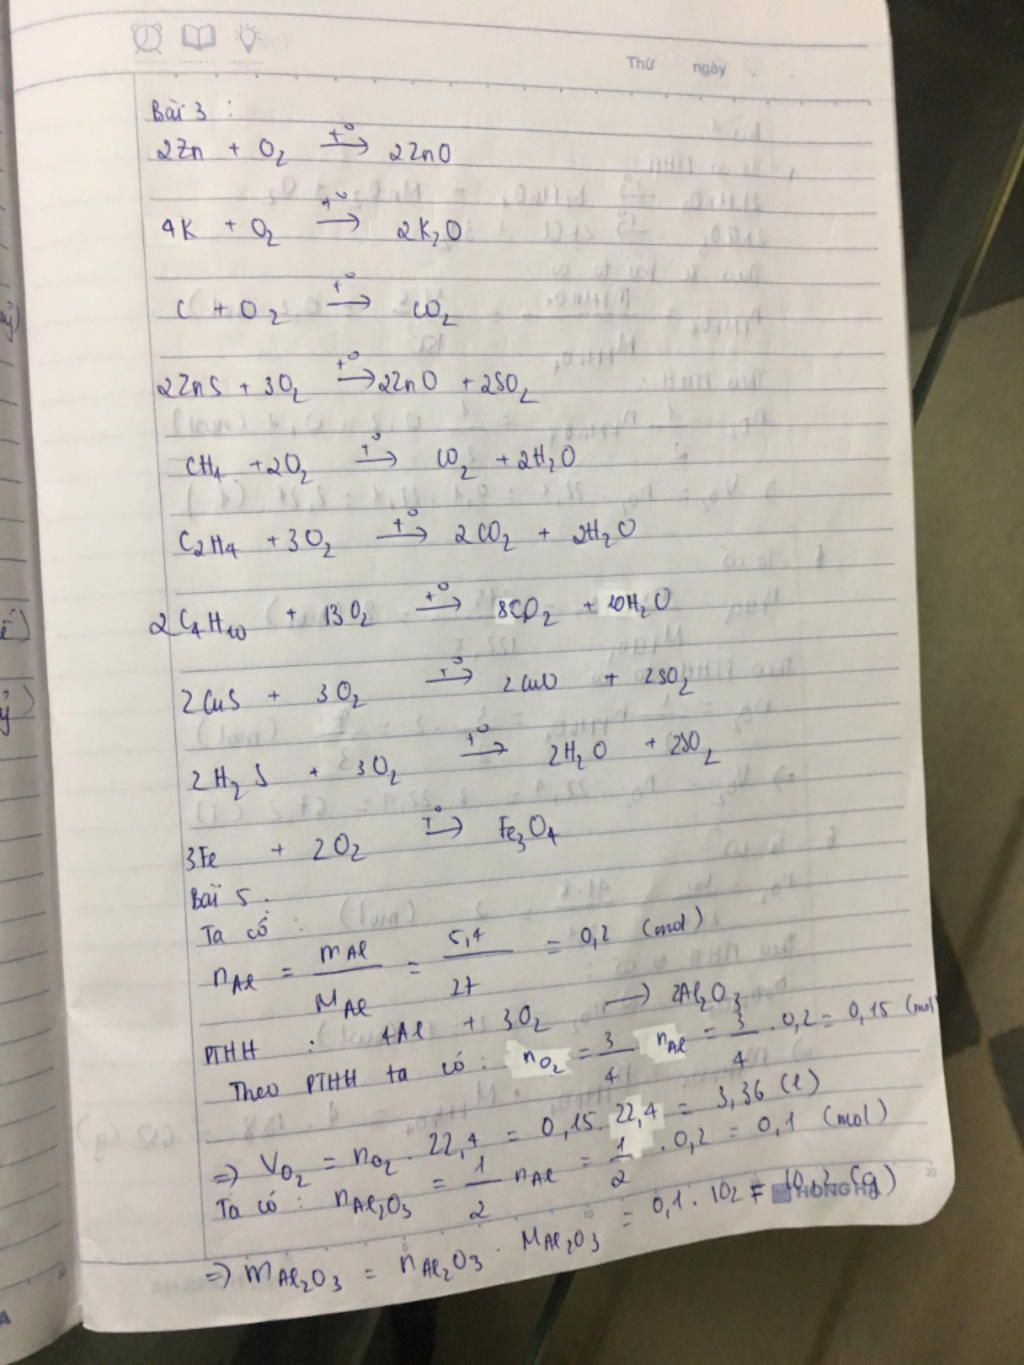 Thứ ngày
Bài 3 :
2Zn + O₂ →(t⁰) 2ZnO
4K + O₂ →(t⁰) 2K₂O
C + O₂ →(t⁰) CO₂
2ZnS + 3O₂ →(t⁰) 2ZnO + 2SO₂
CH₄ + 2O₂ →(t⁰) CO₂ + 2H₂O
C₂H₄ + 3O₂ →(t⁰) 2CO₂ + 2H₂O
2C₄H₁₀ + 13O₂ →(t⁰) 8CO₂ + 10H₂O
2CuS + 3O₂ →(t⁰) 2CuO + 2SO₂
2H₂S + 3O₂ →(t⁰) 2H₂O + 2SO₂
3Fe + 2O₂ →(t⁰) Fe₃O₄
Bài 5 :
Ta có :
nAl = mAl / MAl = 5,4 / 27 = 0,2 (mol)
PTHH : 4Al + 3O₂ → 2Al₂O₃
Theo PTHH ta có : nO₂ = 3/4 nAl = 3/4 . 0,2 = 0,15 (mol
=> VO₂ = nO₂ . 22,4 = 0,15 . 22,4 = 3,36 (l)
Ta có : nAl₂O₃ = 1/2 nAl = 1/2 . 0,2 = 0,1 (mol)
=> mAl₂O₃ = nAl₂O₃ . MAl₂O₃ = 0,1 . 102 = 10,2 (g)
HONG HA